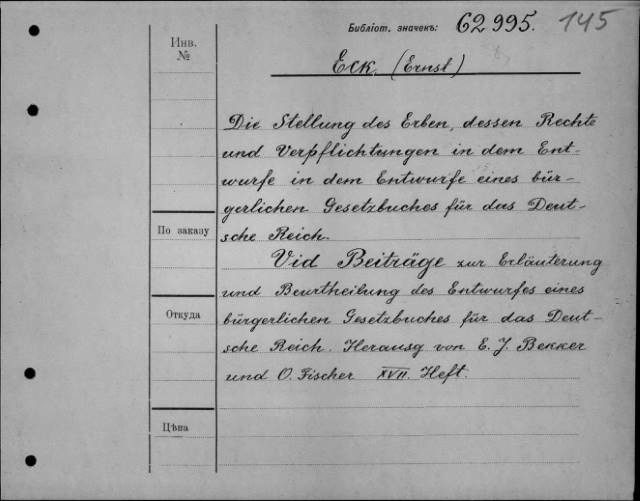 Библіот. значекъ: 62995. 145
Инв. №
Eck. (Ernst)
Die Stellung des Erben, dessen Rechte
und Verpflichtungen in dem Ent-
wurfe in dem Entwurfe eines bür-
gerlichen Gesetzbuches für das Deut-
sche Reich.
По заказу
Vid Beiträge zur Erläuterung
und Beurtheilung des Entwurfes eines
Откуда
bürgerlichen Gesetzbuches für das Deut-
sche Reich. Herausg von E. J. Bekker
und O. Fischer XVII. Heft.
Цѣна